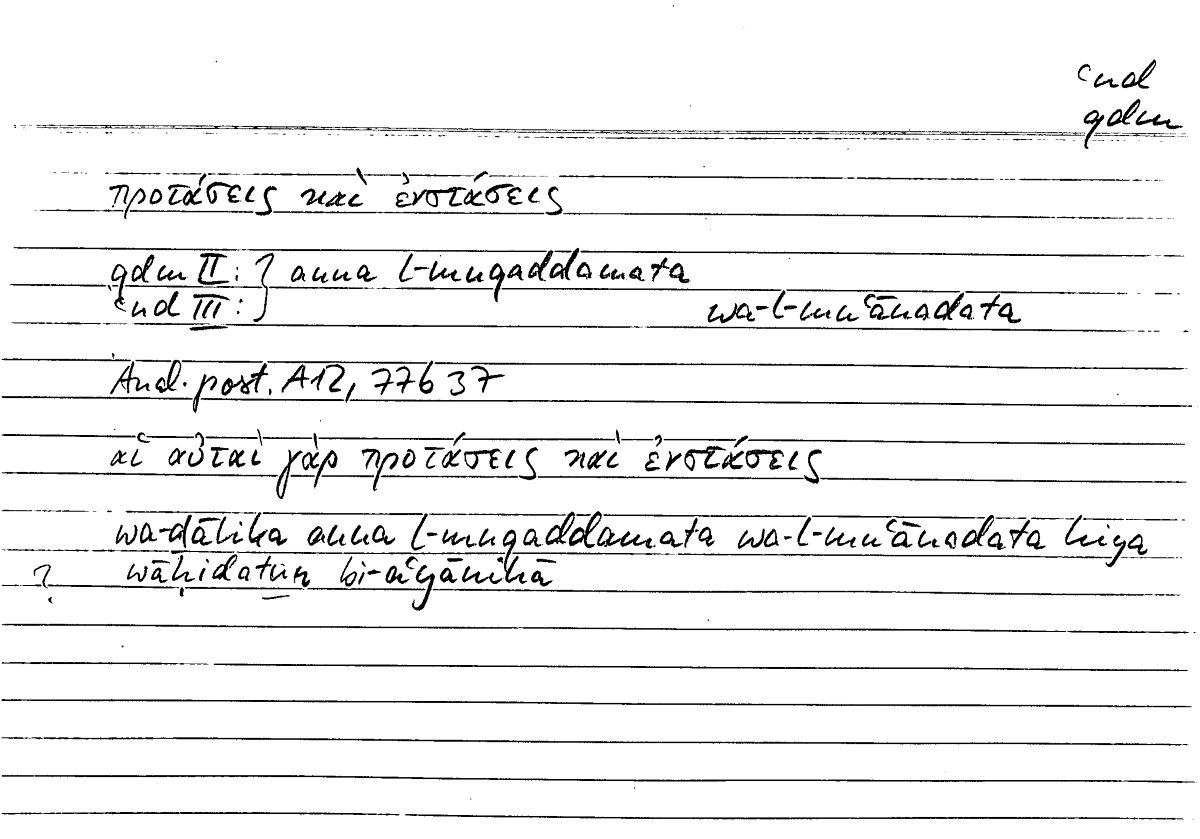 ʿnd
qdm
προτάσεις καὶ ἐνστάσεις
qdm II: } anna l-muqaddamata
ʿnd III: } wa-l-muʿānadata
Anal. post. A12, 77b 37
αἱ αὐταὶ γὰρ προτάσεις καὶ ἐνστάσεις
wa-ḏālika anna l-muqaddamata wa-l-muʿānadata hiya
? wāḥidatun bi-aʿyānihā